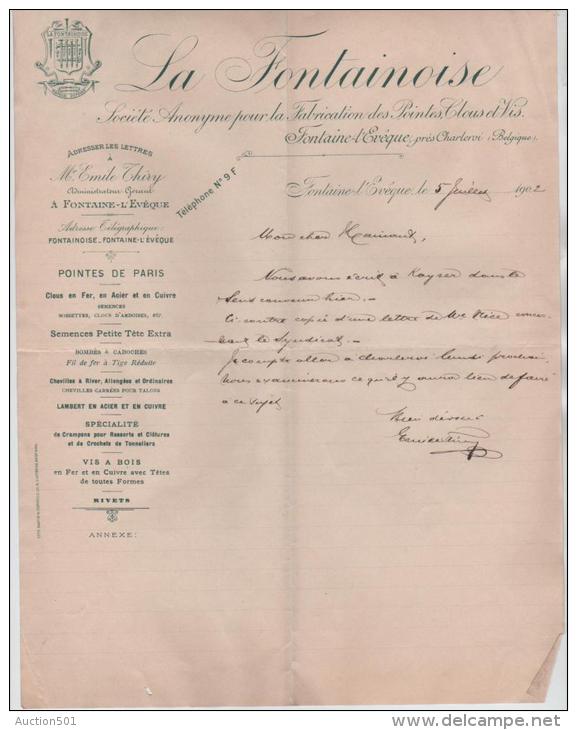 LA FONTAINOISE
La Fontainoise
Société Anonyme pour la Fabrication des Pointes, Clous et Vis.
Fontaine-l'Evêque, près Charleroi (Belgique).
ADRESSER LES LETTRES
A
Mr Emile Thiry
Administrateur Gérant
À FONTAINE-L'EVÊQUE
Adresse Télégraphique:
FONTAINOISE_FONTAINE-L'ÉVÊQUE
Téléphone N° 9.F
POINTES DE PARIS
Clous en Fer, en Acier et en Cuivre
SEMENCES
NOISETTES, CLOUS D'ARDOISES, ETC.
Semences Petite Tête Extra
BOMBÉS & CABOCHES
Fil de fer à Tige Réduite
Chevilles à River, Allongées et Ordinaires
CHEVILLES CARRÉES POUR TALONS
LAMBERT EN ACIER ET EN CUIVRE
SPÉCIALITÉ
de Crampons pour Ressorts et Clôtures
et de Crochets de Tonneliers
VIS A BOIS
en Fer et en Cuivre avec Têtes
de toutes Formes
RIVETS
ANNEXE:
Fontaine-l'Evêque, le 5 Juillet 1902
Mon cher Hainaut,
Nous avons écrit à Kayser dans le
sens convenu hier. —
Ci contre copie d'une lettre de Mr
le Syndicat. —
Je compte aller à Charleroi lundi prochain.
Nous examinerons ce qu'il y aura lieu de faire
à ce sujet
Bien dévoué
Emile Thiry
Auction501
www.delcampe.net